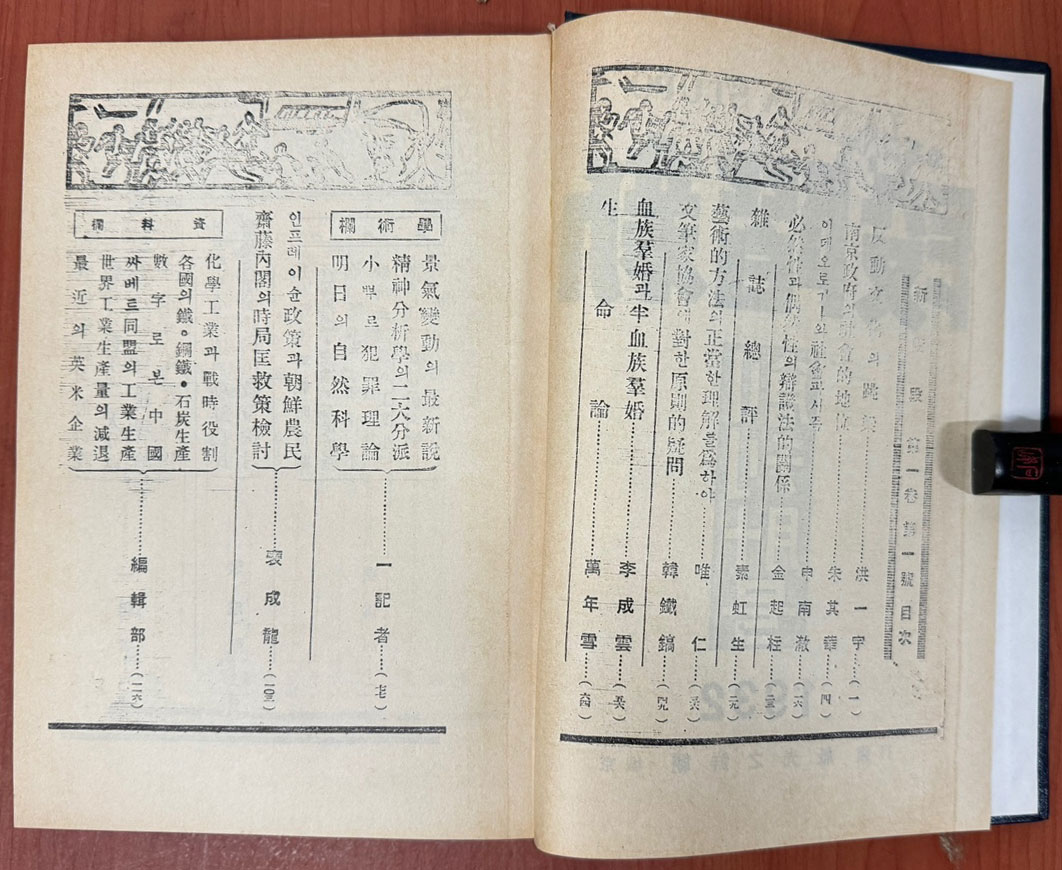 新 段 第一卷 第一號 目次
反動 의 跳 洪一宇 (一)
南京政府의 社會的地位 朱其華 (四)
이데오로기-와 申南澈 (一六)
必然性과偶然性의辯證法的關係 金起柱
雜誌總評 素虹生 (二九)
藝術的方法의正當한理解를爲하야 唯仁
文筆家協會에對한原則的疑問 韓鐵鎬 (四九)
血族羣婚과半血族羣婚 李成雲 (五六)
生命論 萬年雪 (六四)
學術欄
景氣變動의最新說
精神分析學의二大分派
小뿌르犯罪理論
明日의自然科學
一記者 (七七)
인프레이슌政策과朝鮮農民
齋藤內閣의時局匡救策檢討
裵成龍 (一〇三)
資料欄
化學工業과戰時役割
各國의鐵•鋼鐵•石炭生產
數字로본中國
싸베트同盟의工業生產
世界工業生產量의減退
最近의英米企業
編輯部 (一二六)